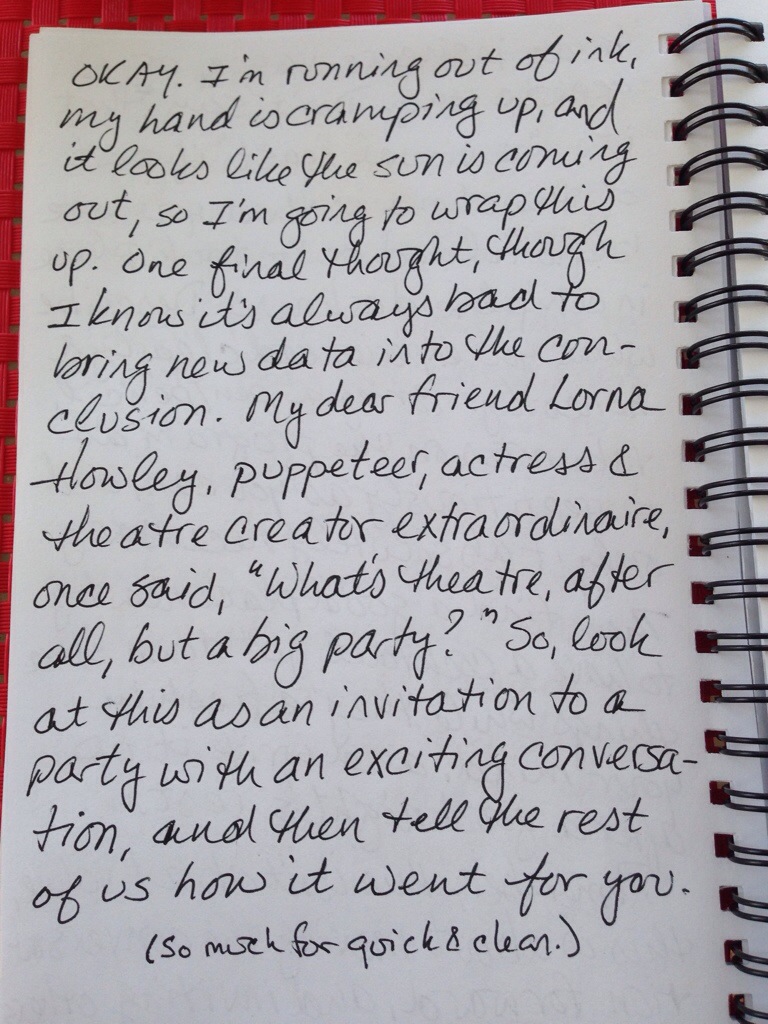 OKAY. I'm running out of ink,
my hand is cramping up, and
it looks like the sun is coming
out, so I'm going to wrap this
up. One final thought, though
I know it's always bad to
bring new data into the con-
clusion. My dear friend Lorna
Howley, puppeteer, actress &
theatre creator extraordinaire,
once said, "What's theatre, after
all, but a big party?" So, look
at this as an invitation to a
party with an exciting conversa-
tion, and then tell the rest
of us how it went for you.
(So much for quick & clean.)